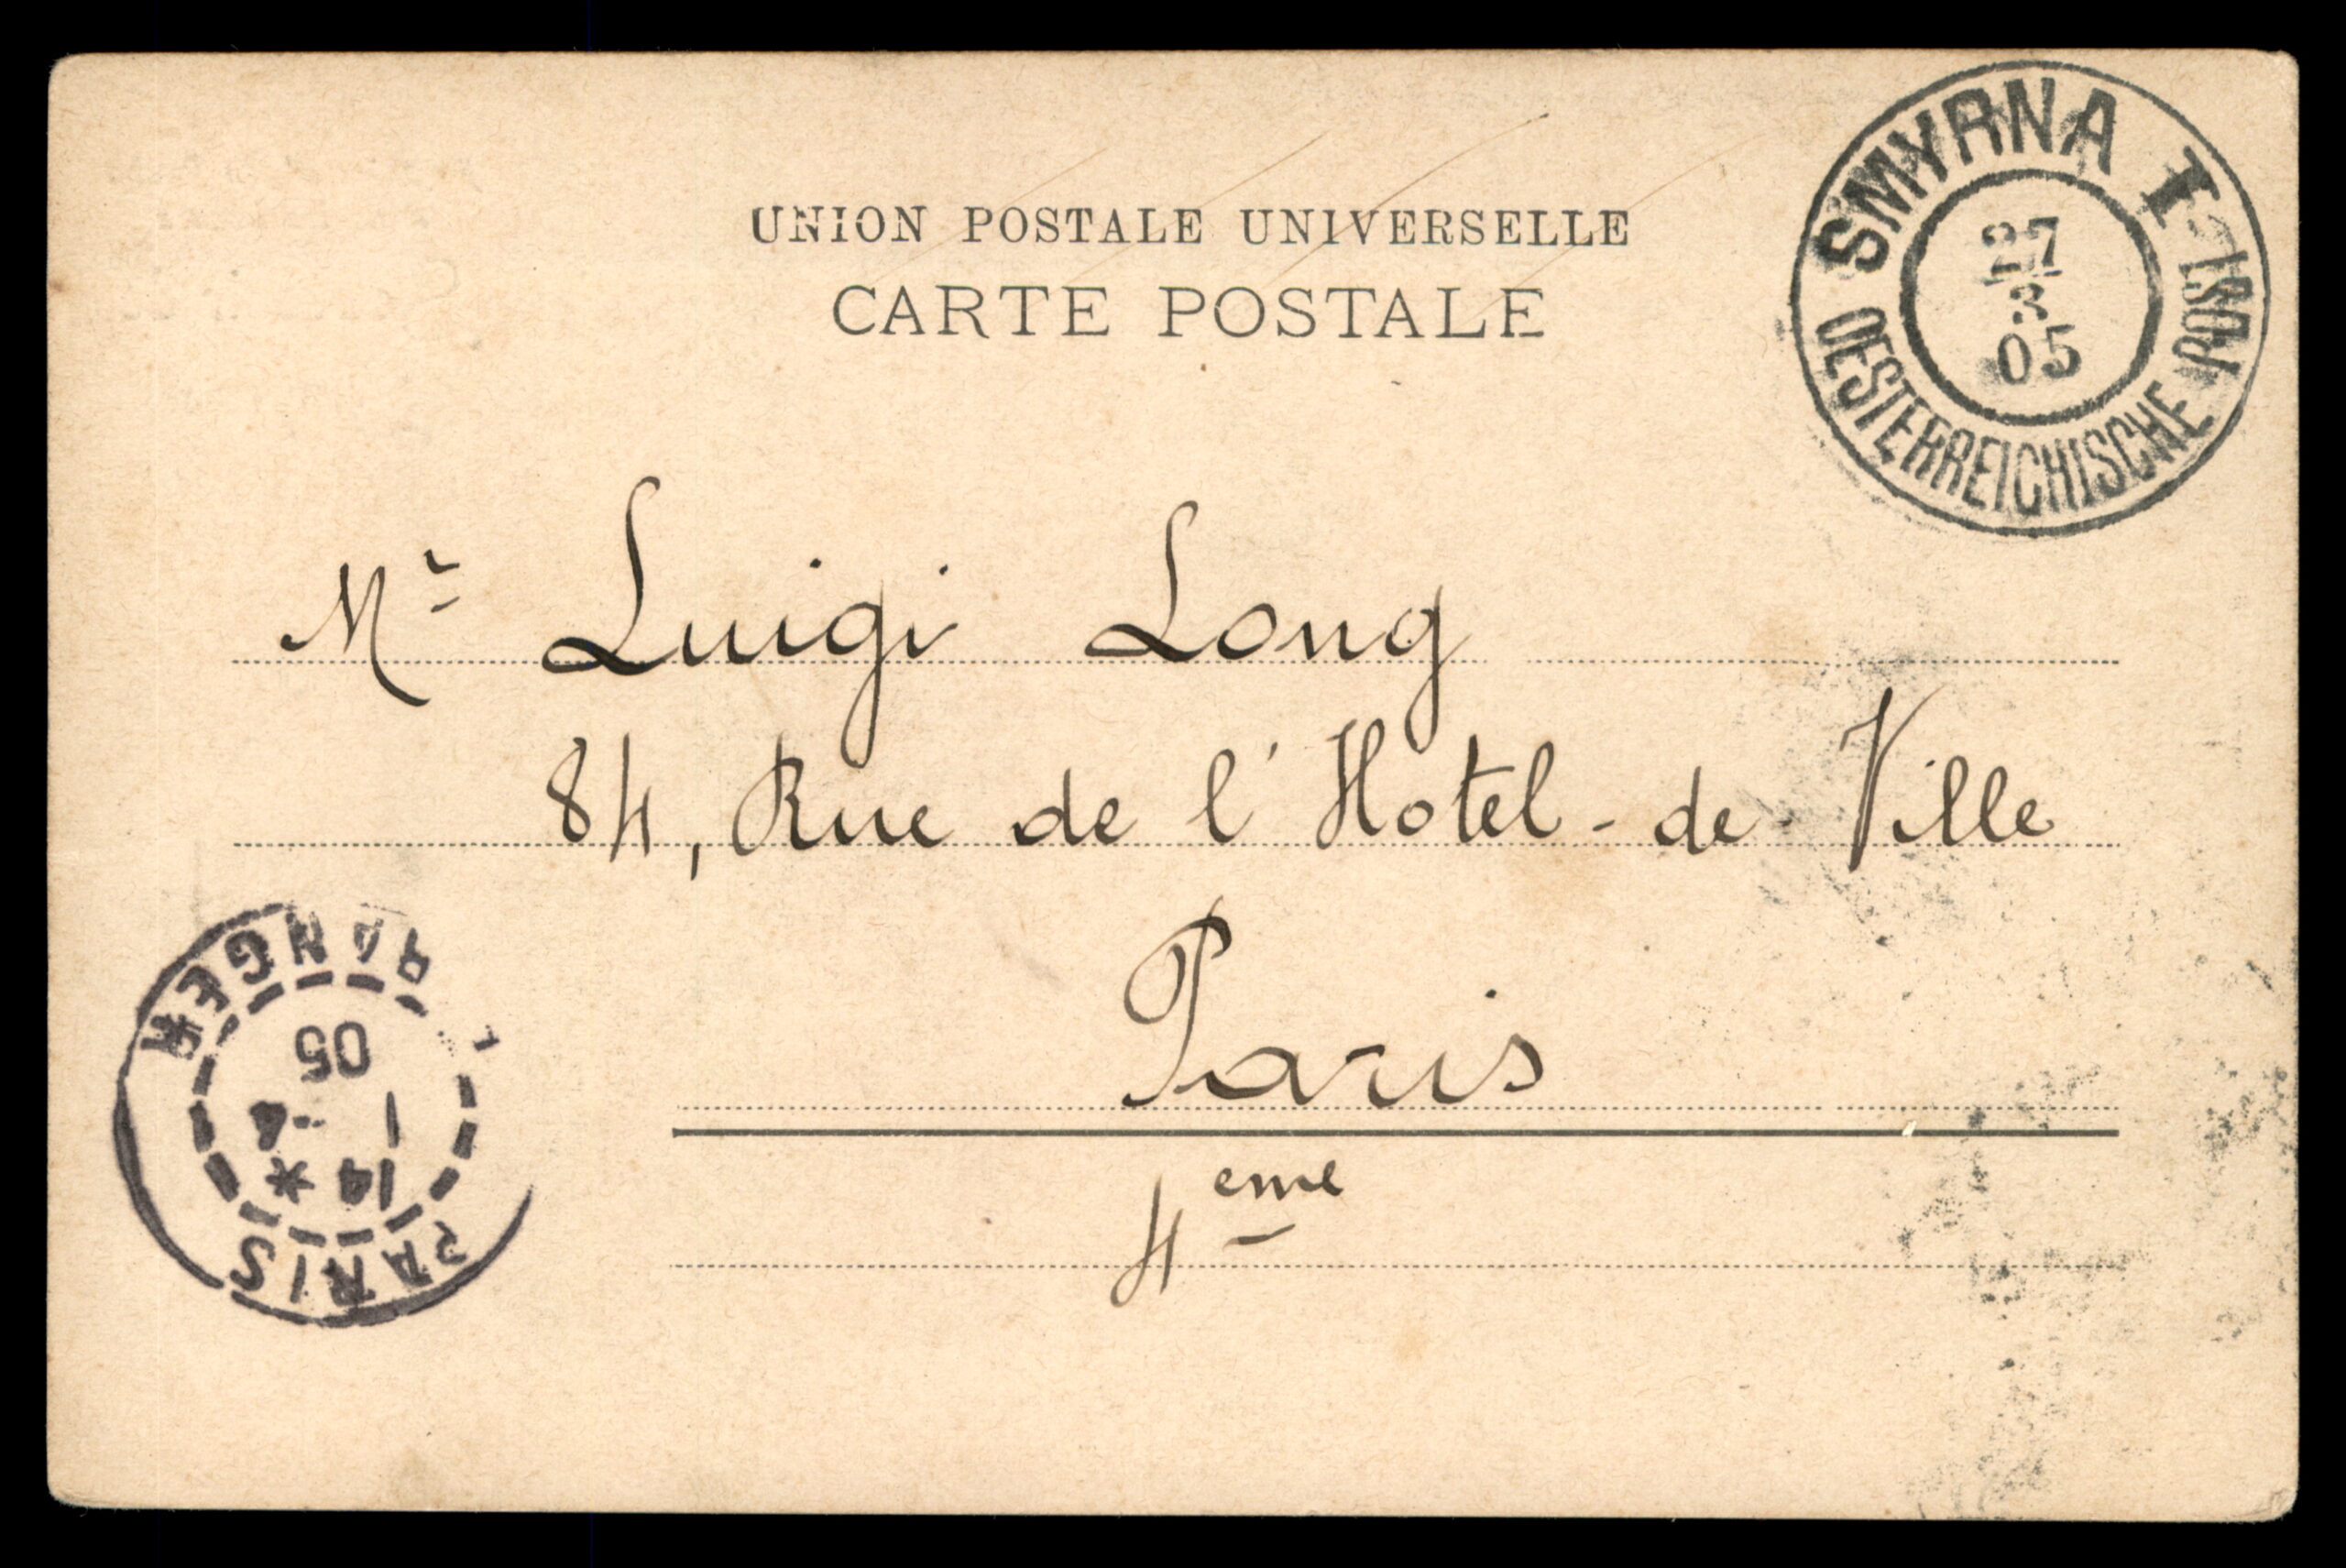 UNION POSTALE UNIVERSELLE
CARTE POSTALE
SMYRNA I
27
3
05
OESTERREICHISCHE POST
Mr Luigi Long
84, Rue de l'Hotel-de-Ville
Paris
4eme
PARIS
14 *
1 -4
05
RANGER